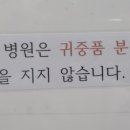 병원은 귀중품 분
을 지지 않습니다.